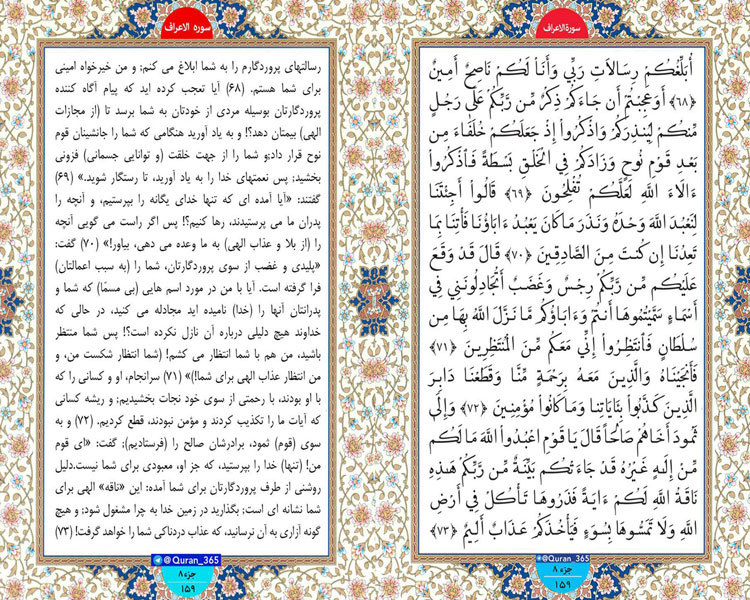 سورة الاعراف
أُبَلِّغُكُمْ رِسَالَاتِ رَبِّي وَأَنَا۠ لَكُمْ نَاصِحٌ أَمِينٌ
﴿۶۸﴾ أَوَعَجِبْتُمْ أَن جَاءَكُمْ ذِكْرٌ مِّن رَّبِّكُمْ عَلَىٰ رَجُلٍ
مِّنكُمْ لِيُنذِرَكُمْ وَاذْكُرُوا إِذْ جَعَلَكُمْ خُلَفَاءَ مِن
بَعْدِ قَوْمِ نُوحٍ وَزَادَكُمْ فِي الْخَلْقِ بَسْطَةً فَاذْكُرُوا
ءَالَاءَ اللَّهِ لَعَلَّكُمْ تُفْلِحُونَ ﴿۶۹﴾ قَالُوا أَجِئْتَنَا
لِنَعْبُدَ اللَّهَ وَحْدَهُ وَنَذَرَ مَا كَانَ يَعْبُدُ ءَابَاؤُنَا فَأْتِنَا بِمَا
تَعِدُنَا إِن كُنتَ مِنَ الصَّادِقِينَ ﴿۷۰﴾ قَالَ قَدْ وَقَعَ
عَلَيْكُم مِّن رَّبِّكُمْ رِجْسٌ وَغَضَبٌ أَتُجَادِلُونَنِي فِي
أَسْمَاءٍ سَمَّيْتُمُوهَا أَنتُمْ وَءَابَاؤُكُم مَّا نَزَّلَ اللَّهُ بِهَا مِن
سُلْطَانٍ فَانتَظِرُوا إِنِّي مَعَكُم مِّنَ الْمُنتَظِرِينَ ﴿۷۱﴾
فَأَنجَيْنَاهُ وَالَّذِينَ مَعَهُ بِرَحْمَةٍ مِّنَّا وَقَطَعْنَا دَابِرَ
الَّذِينَ كَذَّبُوا بِـَٔايَاتِنَا وَمَا كَانُوا مُؤْمِنِينَ ﴿۷۲﴾ وَإِلَىٰ
ثَمُودَ أَخَاهُمْ صَالِحًا قَالَ يَا قَوْمِ اعْبُدُوا اللَّهَ مَا لَكُم
مِّنْ إِلَٰهٍ غَيْرُهُ قَدْ جَاءَتْكُم بَيِّنَةٌ مِّن رَّبِّكُمْ هَٰذِهِ
نَاقَةُ اللَّهِ لَكُمْ ءَايَةً فَذَرُوهَا تَأْكُلْ فِي أَرْضِ
اللَّهِ وَلَا تَمَسُّوهَا بِسُوءٍ فَيَأْخُذَكُمْ عَذَابٌ أَلِيمٌ ﴿۷۳﴾
@Quran_365
جزء ۸
۱۵۹
سوره الاعراف
رسالتهای پروردگارم را به شما ابلاغ می کنم; و من خیرخواه امینی
برای شما هستم. (۶۸) آیا تعجب کرده اید که پیام آگاه کننده
پروردگارتان بوسیله مردی از خودتان به شما برسد تا (از مجازات
الهی) بیمتان دهد؟! و به یاد آورید هنگامی که شما را جانشینان قوم
نوح قرار داد;و شما را از جهت خلقت (و توانایی جسمانی) فزونی
بخشید; پس نعمتهای خدا را به یاد آورید، تا رستگار شوید.» (۶۹)
گفتند: «آیا آمده ای که تنها خدای یگانه را بپرستیم، و آنچه را
پدران ما می پرستیدند، رها کنیم؟! پس اگر راست می گویی آنچه
را (از بلا و عذاب الهی) به ما وعده می دهی، بیاور!» (۷۰) گفت:
«پلیدی و غضب از سوی پروردگارتان، شما را (به سبب اعمالتان)
فرا گرفته است. آیا با من در مورد اسم هایی (بی مسمّا) که شما و
پدرانتان آنها را (خدا) نامیده اید مجادله می کنید، در حالی که
خداوند هیچ دلیلی درباره آن نازل نکرده است؟! پس شما منتظر
باشید، من هم با شما انتظار می کشم! (شما انتظار شکست من، و
من انتظار عذاب الهی برای شما!)» (۷۱) سرانجام، او و کسانی را که
با او بودند، با رحمتی از سوی خود نجات بخشیدیم; و ریشه کسانی
که آیات ما را تکذیب کردند و مؤمن نبودند، قطع کردیم. (۷۲) و به
سوی (قوم) ثمود، برادرشان صالح را (فرستادیم); گفت: «ای قوم
من! (تنها) خدا را بپرستید، که جز او، معبودی برای شما نیست.دلیل
روشنی از طرف پروردگارتان برای شما آمده: این «ناقه» الهی برای
شما نشانه ای است; بگذارید در زمین خدا به چرا مشغول شود; و هیچ
گونه آزاری به آن نرسانید، که عذاب دردناکی شما را خواهد گرفت! (۷۳)
@Quran_365
جزء ۸
۱۵۹